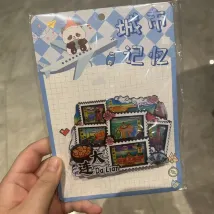 城市
记忆
大连
Da Lian